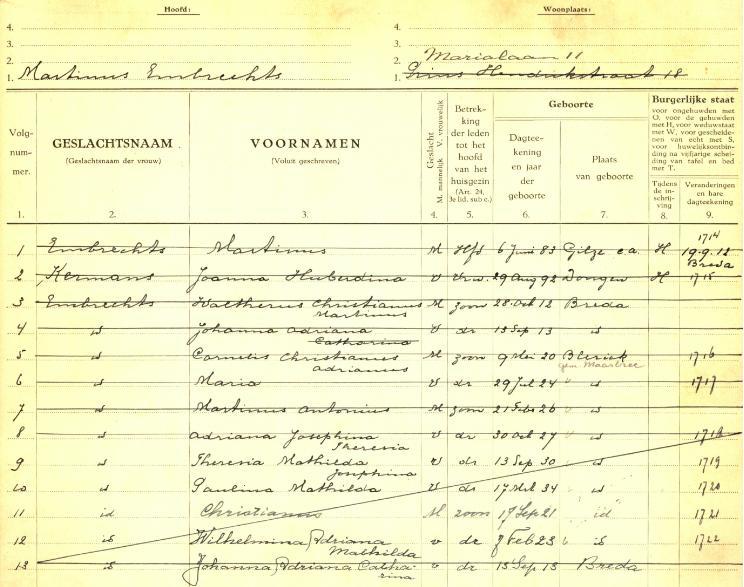 Hoofd:
Woonplaats:
4.
4.
3.
3.
2. Marialaan 11
1. Martinus Embrechts
1. Prins Hendrikstraat 18
Volg-
num-
mer.
GESLACHTSNAAM
(Geslachtsnaam der vrouw)
VOORNAMEN
(Voluit geschreven)
Geslacht
M. mannelijk V. vrouwelijk
Betrek-
king
der leden
tot het
hoofd
van het
huisgezin
(Art. 24,
3e lid, sub c.)
Geboorte
Dagtee-
kening
en jaar
der
geboorte
Plaats
van geboorte
Burgerlijke staat
voor ongehuwden met
O, voor de gehuwden
met H, voor weduwstaat
met W, voor gescheide-
nen van echt met S,
voor huwelijksontbin-
ding na vijfjarige schei-
ding van tafel en bed
met T.
Tijdens
de in-
schrij-
ving
Veranderingen
en hare
dagteekening
1. 2. 3. 4. 5. 6. 7. 8. 9.
1714
1 Embrechts Martinus M Hfd 6 Juni 83 Gilze c.a. H 19.9.12
Breda
2 Kermans Joanna Huberdina v Vrw. 29 Aug 92 Dongen H 1715
3 Embrechts Waltherus Christianus M zoon 28 Oct 12 Breda
Martinus
4 id Johanna Adriana v dr 13 Sep 13 id
Catharina
5 id Cornelis Christianus M zoon 9 Mei 20 Blerick 1716
Adrianus gem Maasbree
6 id Maria v dr 29 Jul 24 id 1717
7 id Martinus Antonius M zoon 21 Feb 26 id
8 id Adriana Josephina v dr 30 Oct 27 id 1718
Theresia
9 id Theresia Mathilda v dr 13 Sep 30 id 1719
Josephina
10 id Paulina Mathilda v dr 17 34 id 1720
11 id Christianus M zoon 17 Sep 21 id 1721
12 id Wilhelmina Adriana v dr 8 Feb 23 id 1722
Mathilda
13 id Johanna Adriana Catha- v dr 13 Sep 13 Breda
rina